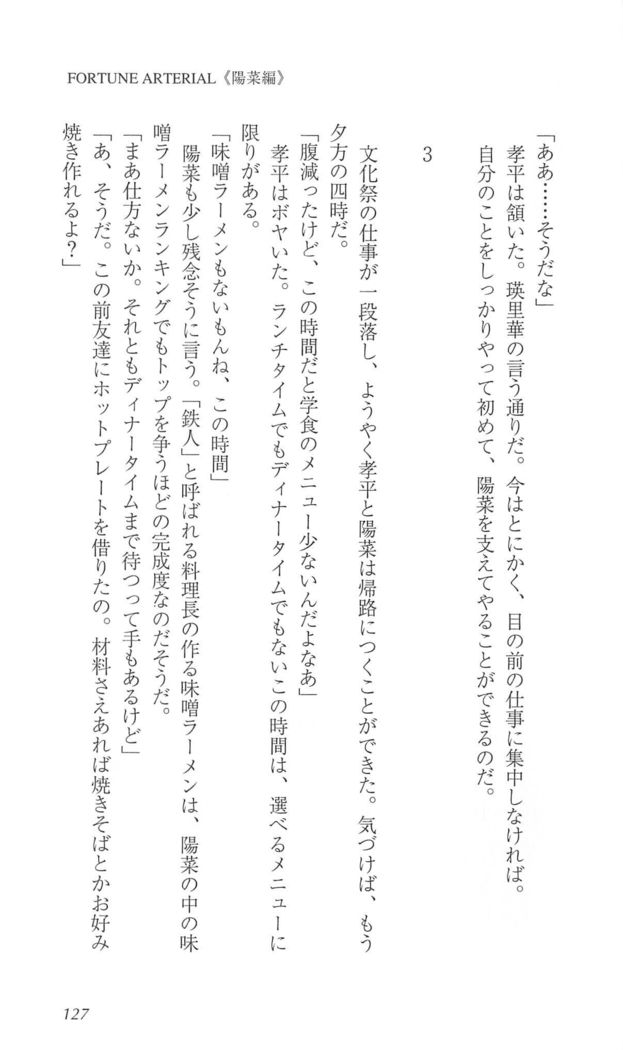 FORTUNE ARTERIAL《陽菜編》
「ああ……そうだな」
孝平は頷いた。瑛里華の言う通りだ。今はとにかく、目の前の仕事に集中しなければ。
自分のことをしっかりやって初めて、陽菜を支えてやることができるのだ。
3
文化祭の仕事が一段落し、ようやく孝平と陽菜は帰路につくことができた。気づけば、もう
夕方の四時だ。
「腹減ったけど、この時間だと学食のメニュー少ないんだよなあ」
孝平はボヤいた。ランチタイムでもディナータイムでもないこの時間は、選べるメニューに
限りがある。
「味噌ラーメンもないもんね、この時間」
陽菜も少し残念そうに言う。「鉄人」と呼ばれる料理長の作る味噌ラーメンは、陽菜の中の味
噌ラーメンランキングでもトップを争うほどの完成度なのだそうだ。
「まあ仕方ないか。それともディナータイムまで待つって手もあるけど」
「あ、そうだ。この前友達にホットプレートを借りたの。材料さえあれば焼きそばとかお好み
焼き作れるよ？」
127